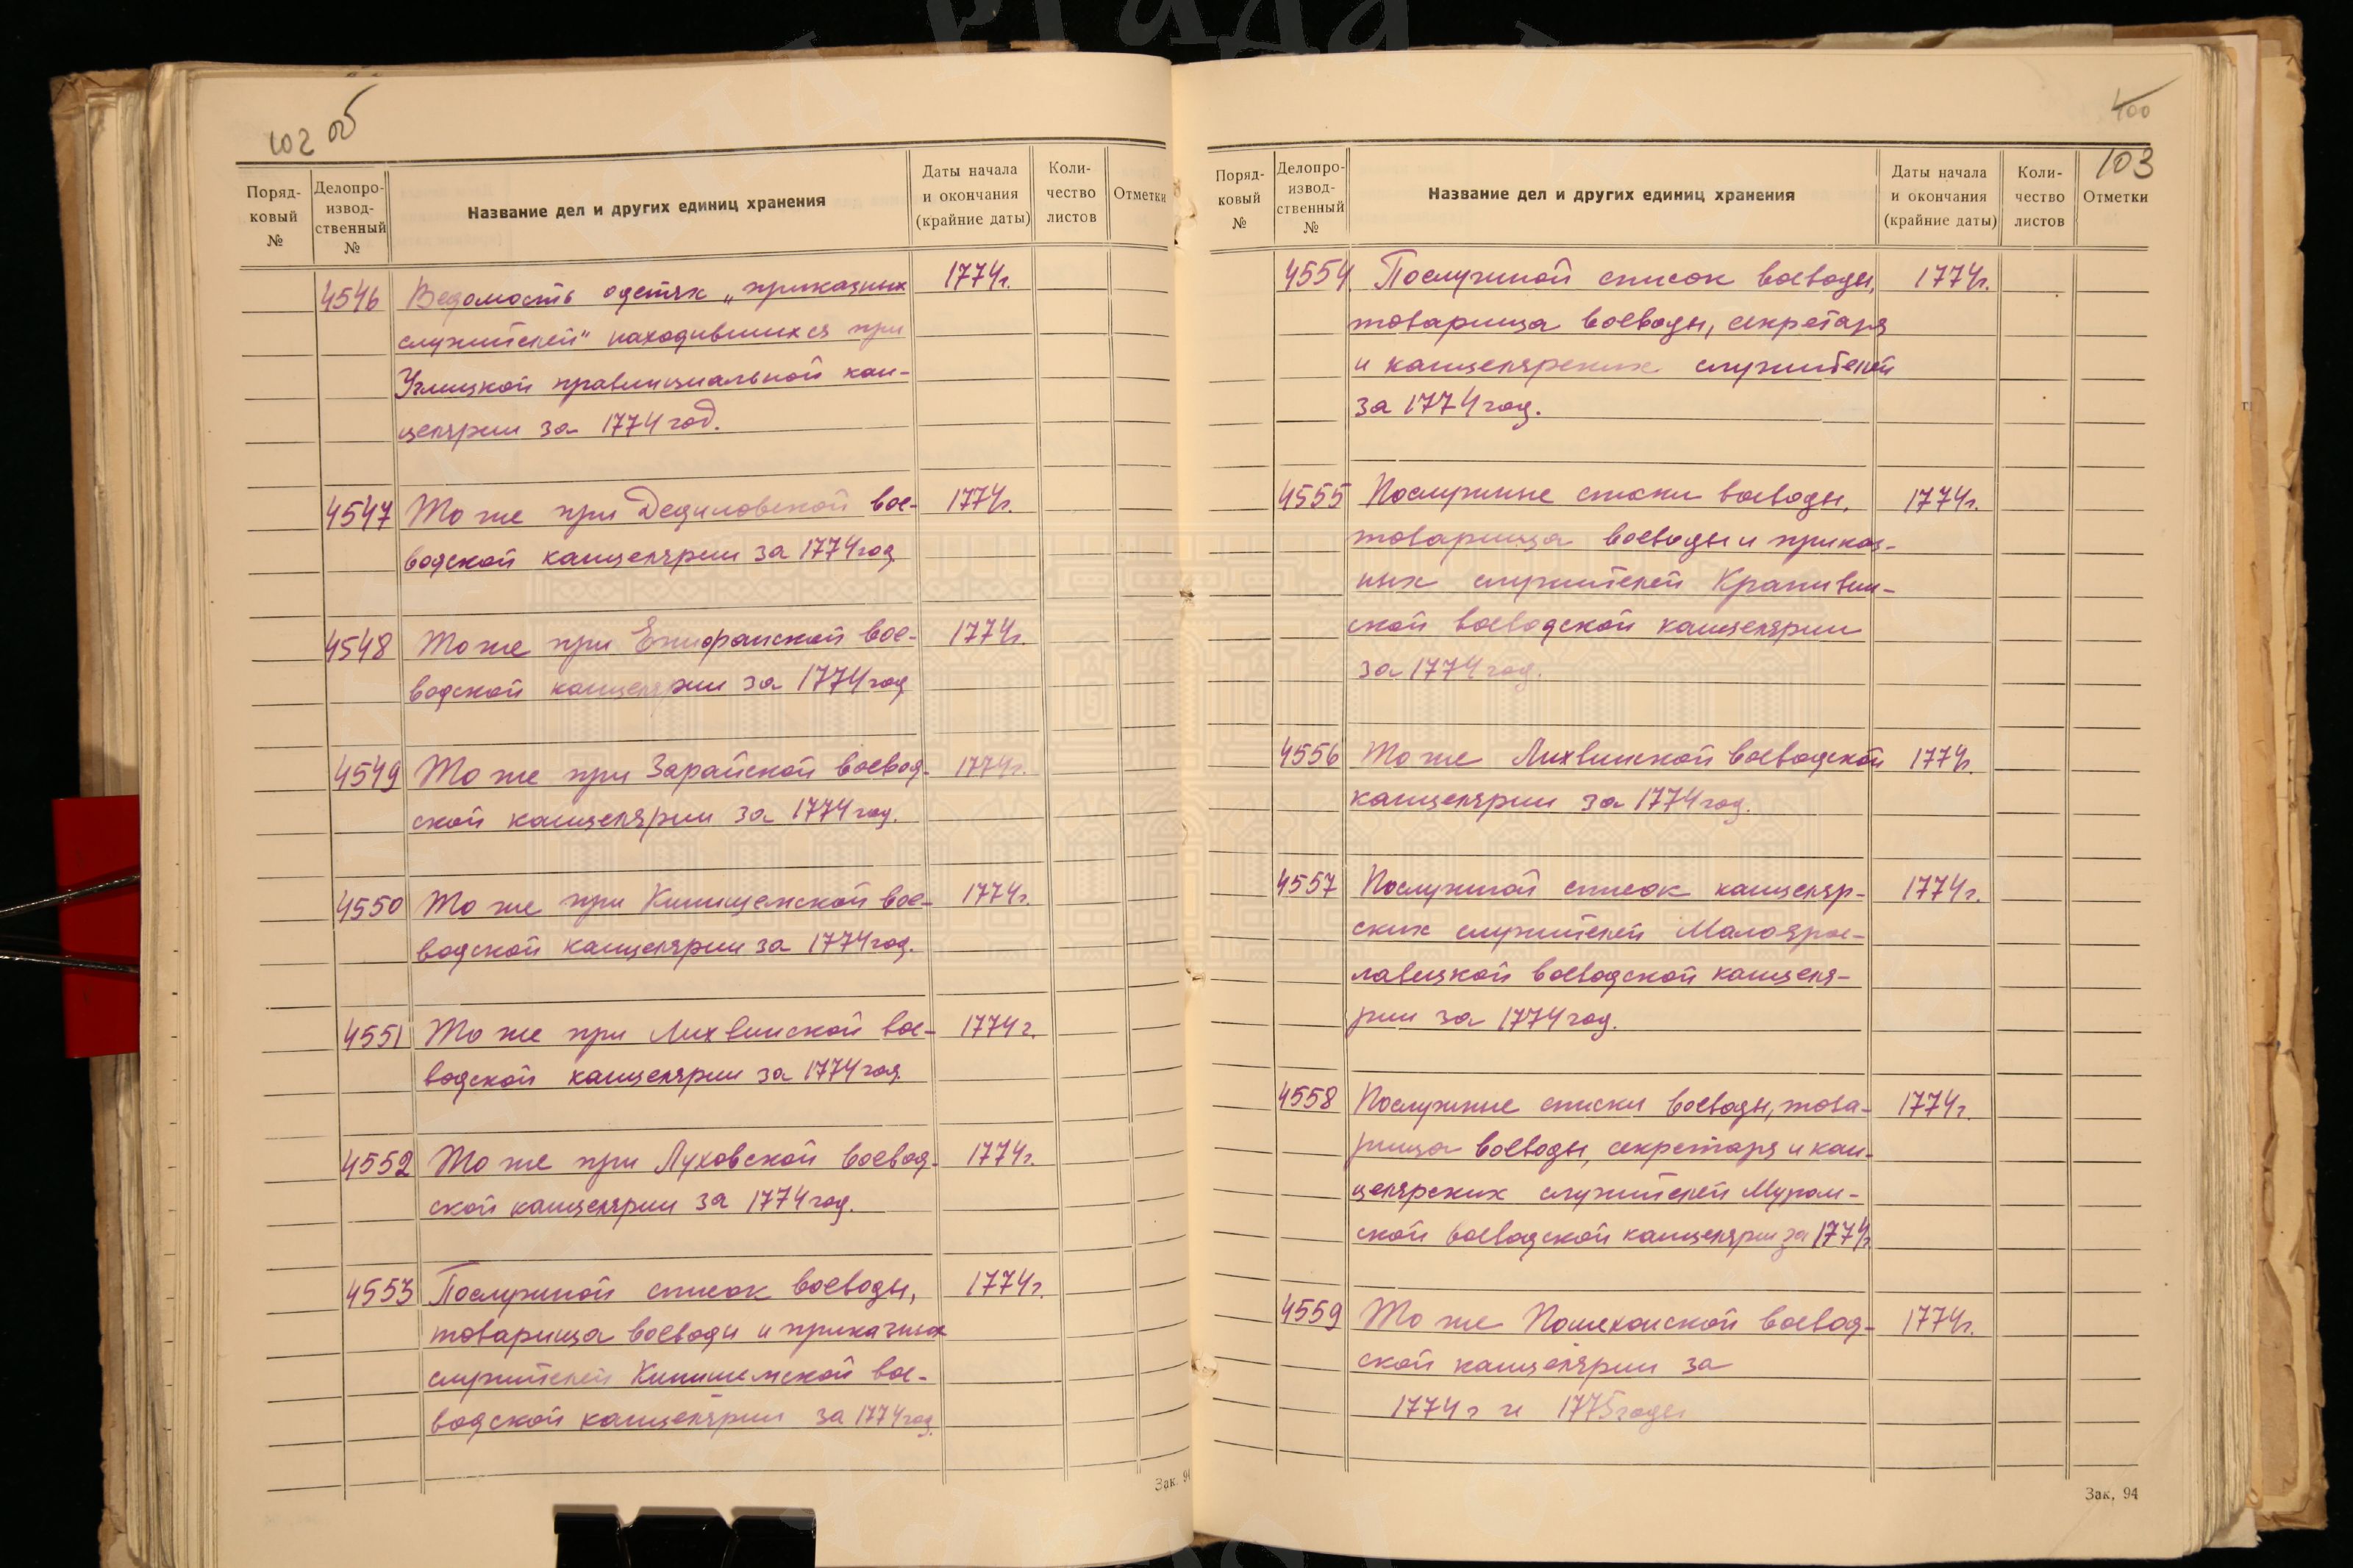 102 об
Поряд-
ковый
№
Делопро-
извод-
ственный
№
Название дел и других единиц хранения
Даты начала
и окончания
(крайние даты)
Коли-
чество
листов
Отметки
4546 Ведомость о детях „приказных 1774г.
служителей" находившихся при
Углицкой правинциальной кан-
целярии за 1774 год.
4547 То же при Дедиловской вое- 1774г.
водской канцелярии за 1774 год
4548 То же при Епифанской вое- 1774г.
водской канцелярии за 1774 год
4549 То же при Зарайской воевод- 1774г.
ской канцелярии за 1774 год.
4550 То же при Кинишемской вое- 1774г.
водской канцелярии за 1774 год.
4551 То же при Лихвинской вое- 1774 г.
водской канцелярии за 1774 год.
4552 То же при Луховской воевод- 1774г.
ской канцелярии за 1774 год.
4553 Послужной список воеводы, 1774г.
товарища воеводы и приказных
служителей Кинишемской вое-
водской канцелярии за 1774 год.
Зак. 94
400
103
Поряд-
ковый
№
Делопро-
извод-
ственный
№
Название дел и других единиц хранения
Даты начала
и окончания
(крайние даты)
Коли-
чество
листов
Отметки
4554 Послужной список воеводы, 1774г.
товарища воеводы, секретаря
и канцелярских служителей
за 1774 год.
4555 Послужные списки воеводы, 1774г.
товарища воеводы и приказ-
ных служителей Крапивин-
ской воеводской канцелярии
за 1774 год.
4556 То же Лихвинской воеводской 1774г.
канцелярии за 1774 год.
4557 Послужной список канцеляр- 1774г.
ских служителей Малоярос-
лавецкой воеводской канцеля-
рии за 1774 год.
4558 Послужные списки воеводы, това- 1774г.
рища воеводы, секретаря и кан-
целярских служителей Муром-
ской воеводской канцелярии за 1774г.
4559 То же Пошехонской воевод- 1774г.
ской канцелярии за
1774 г и 1775 годы
Зак. 94